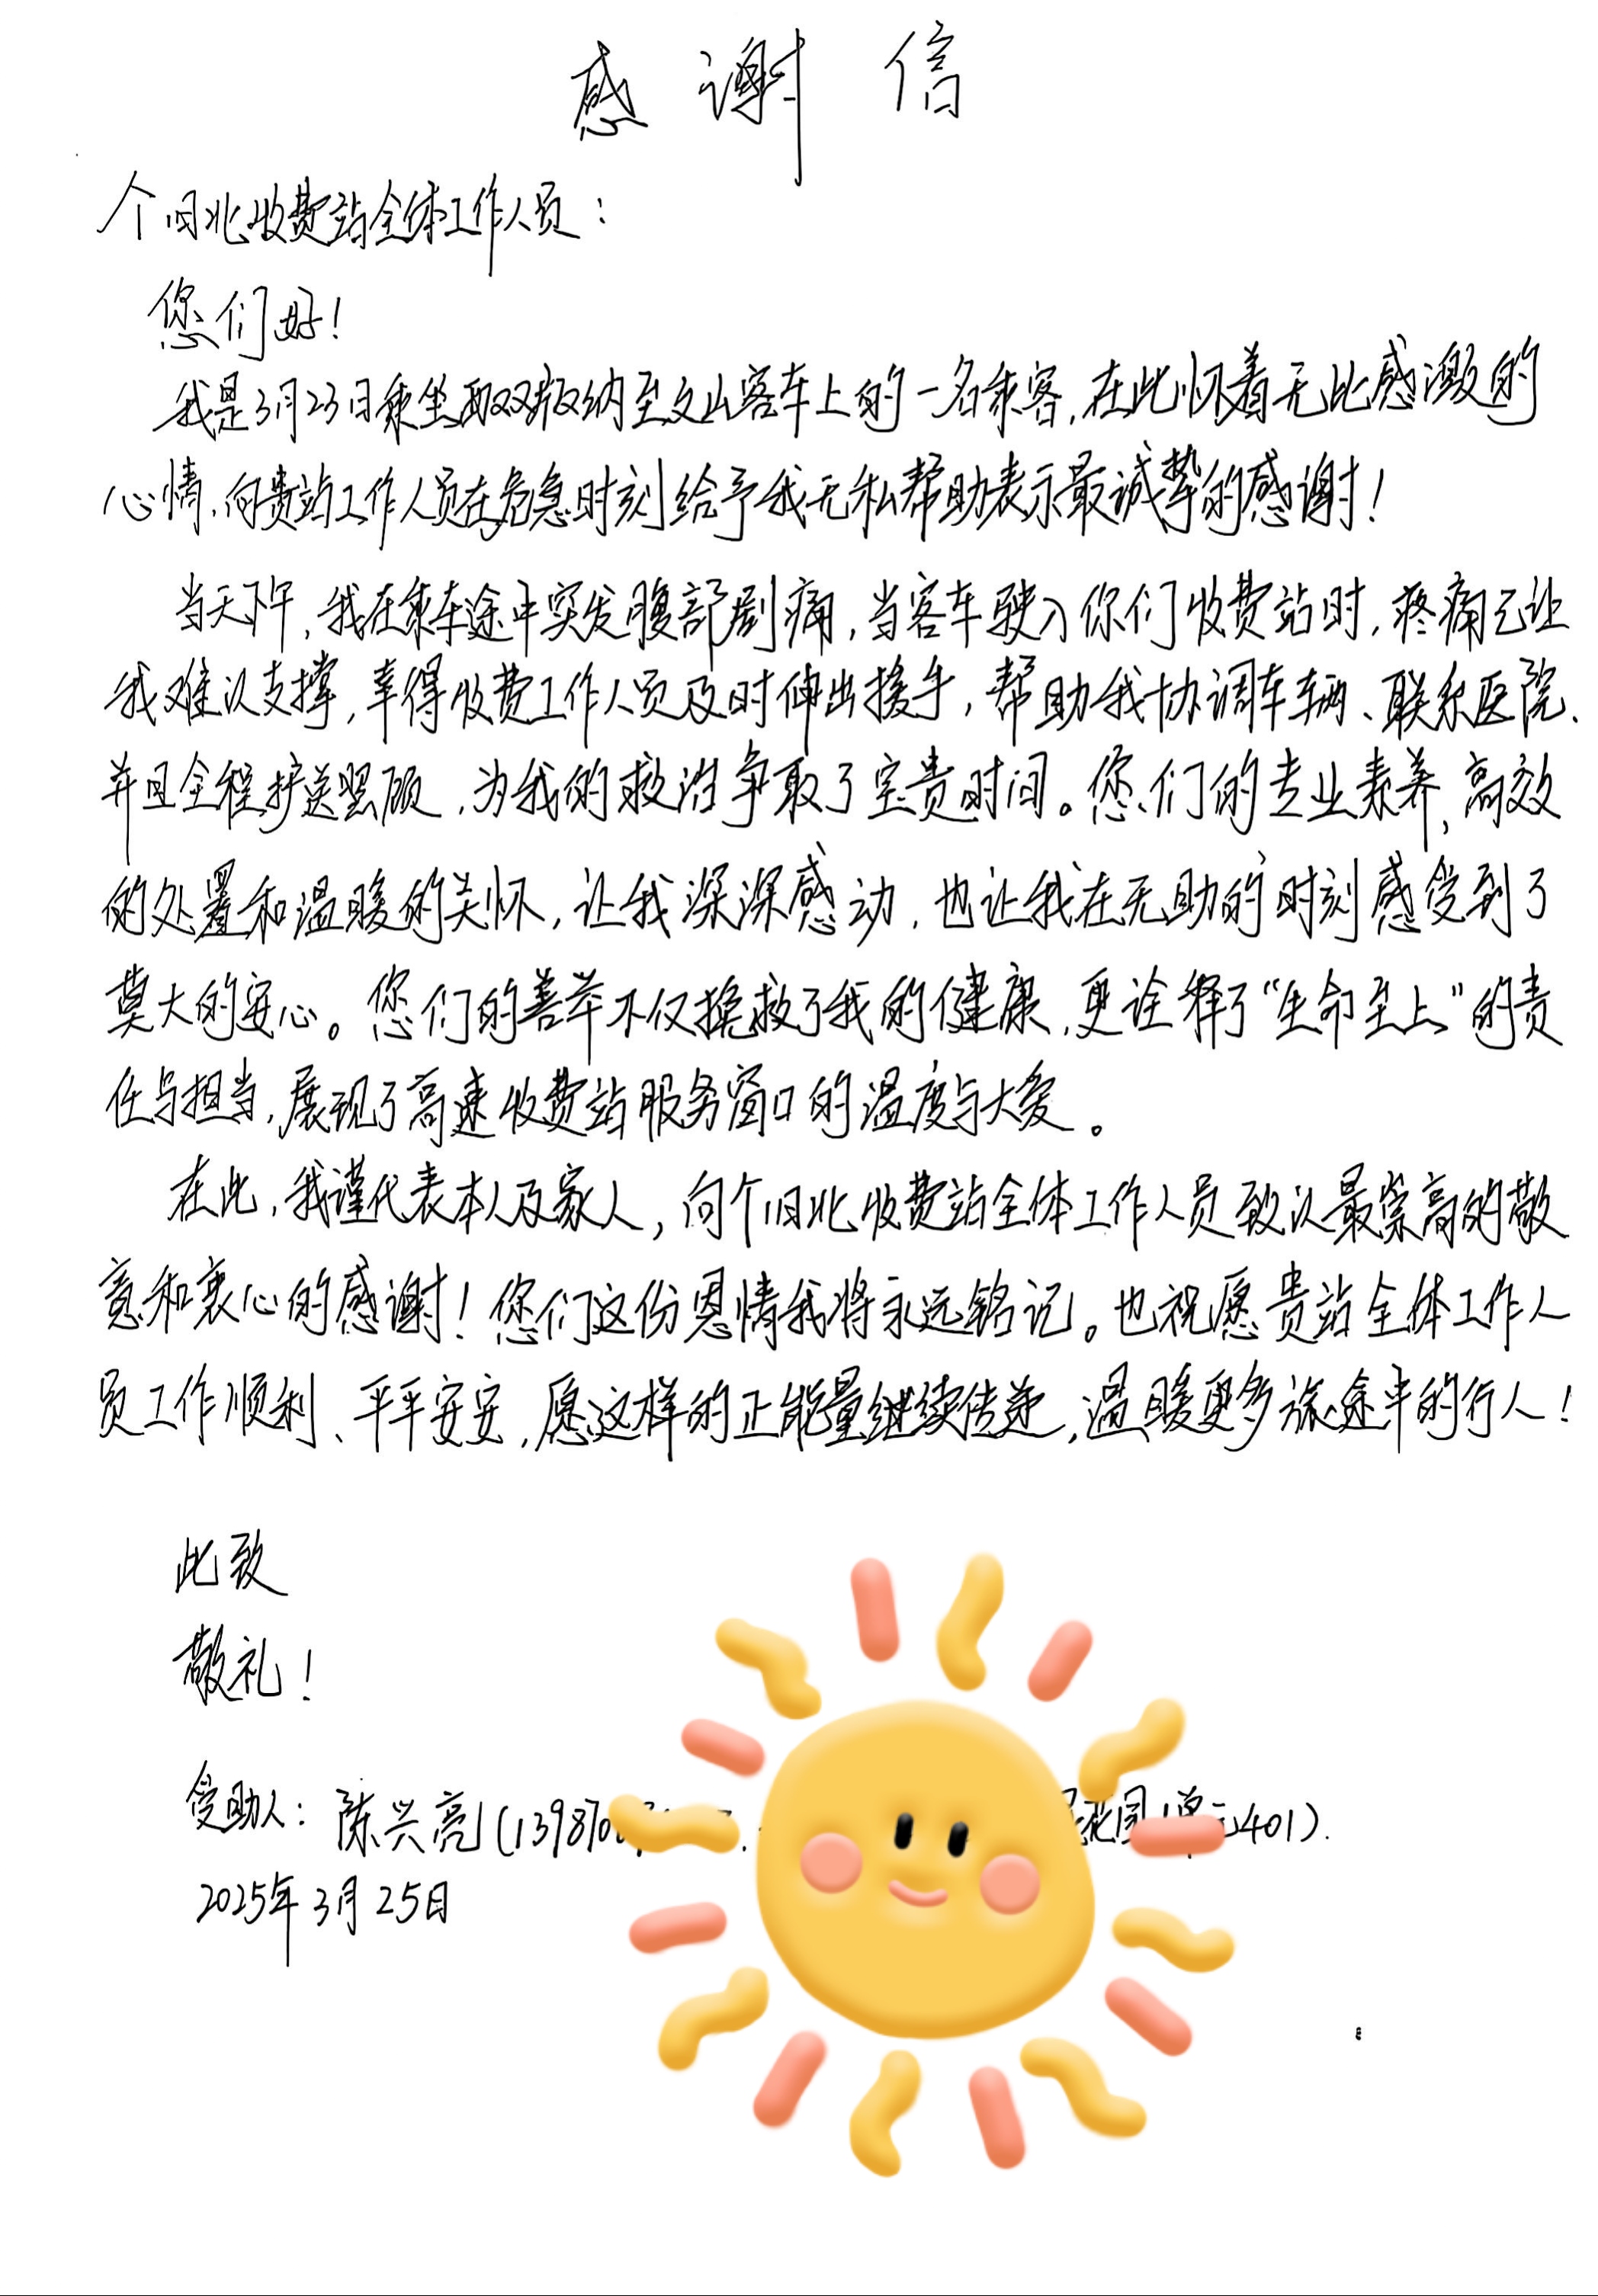 感谢信
个旧北收费站全体工作人员：
您们好！
我是3月23日乘坐西双版纳至文山客车上的一名乘客，在此怀着无比感激的
心情，向贵站工作人员在危急时刻给予我无私帮助表示最诚挚的感谢！
当天下午，我在乘车途中突发腹部剧痛，当客车驶入你们收费站时，疼痛已让
我难以支撑，幸得收费工作人员及时伸出援手，帮助我协调车辆、联系医院、
并且全程护送照顾，为我的救治争取了宝贵时间。您们的专业素养，高效
的处置和温暖的关怀，让我深深感动，也让我在无助的时刻感受到了
莫大的安心。您们的善举不仅挽救了我的健康，更诠释了“生命至上”的责
任与担当，展现了高速收费站服务窗口的温度与大爱。
在此，我谨代表本人及家人，向个旧北收费站全体工作人员致以最崇高的敬
意和衷心的感谢！您们这份恩情我将永远铭记。也祝愿贵站全体工作人
员工作顺利、平平安安，愿这样的正能量继续传递，温暖更多旅途中的行人！
此致
敬礼！
受助人：陈兴亮(13987 花园1单元401).
2025年3月25日